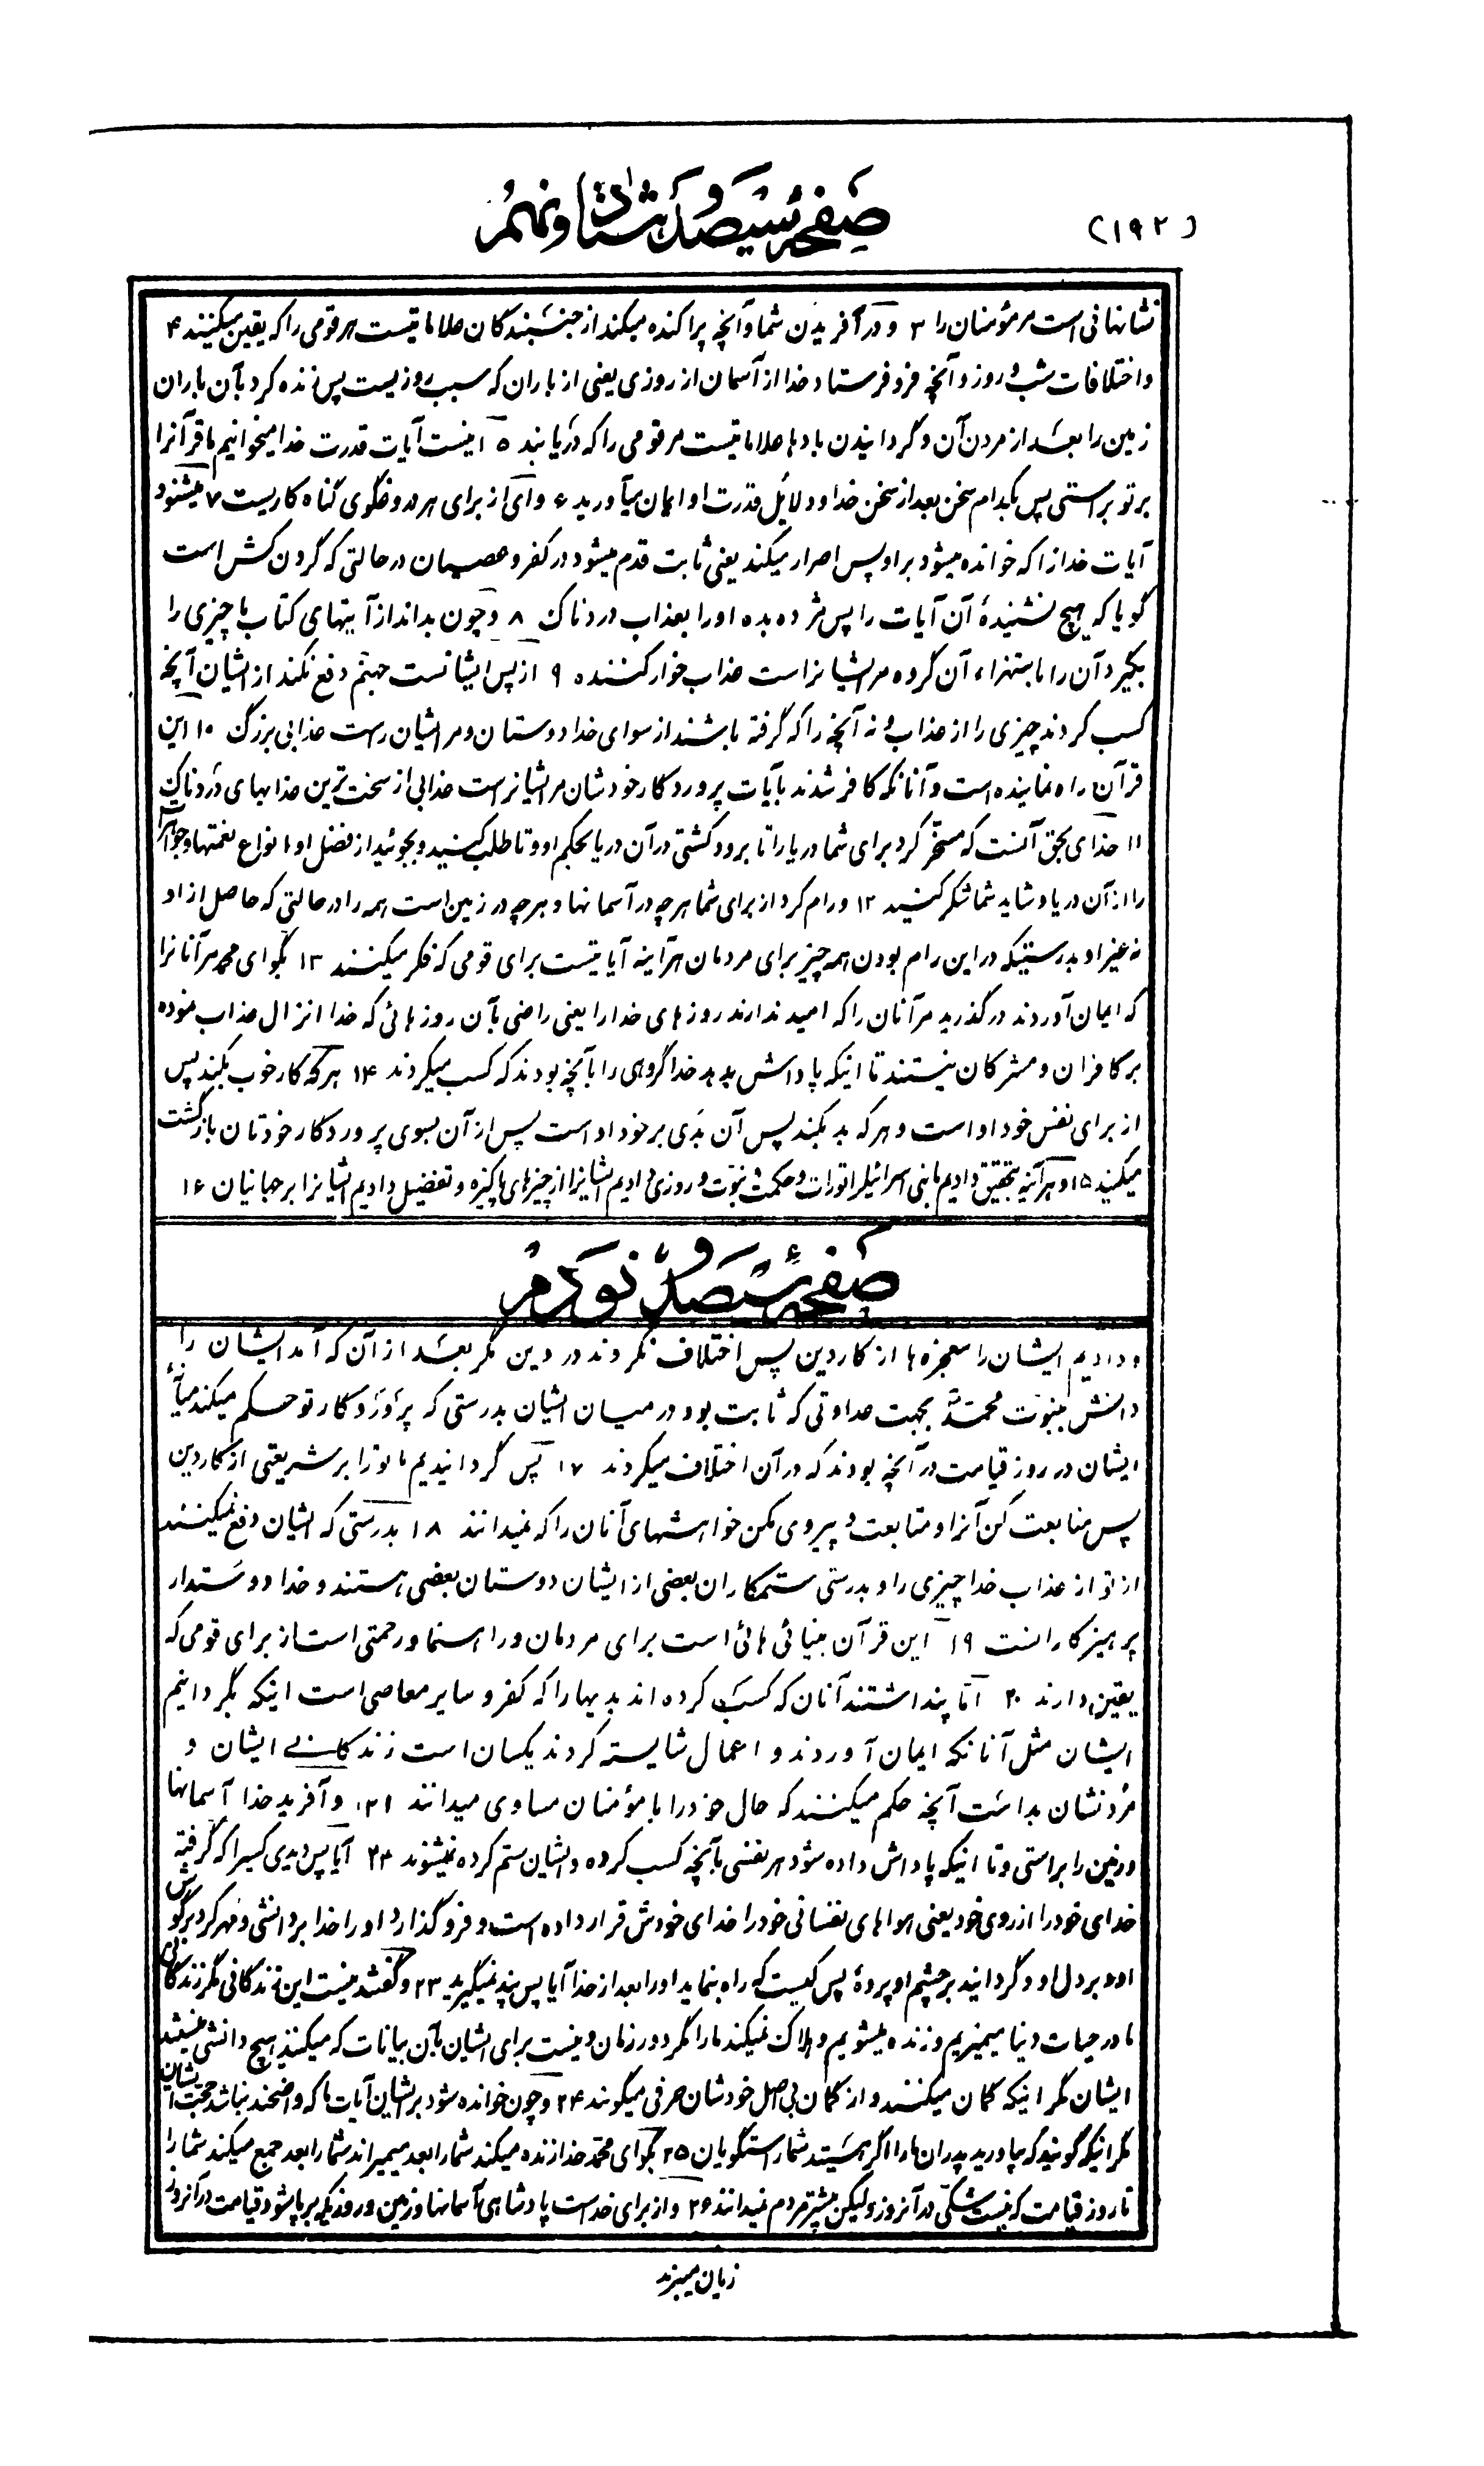 (۱۹۲)
صفحه سیصد و هشتاد و نهم
نشانهائی است مر مؤمنان را ۳ و در آفریدن شما و آنچه پراکنده میکند از جنبندگان علاماتیست هر قومی را که یقین میکنند ۴
و اختلافات شب و روز و آنچه فرو فرستاد خدا از آسمان از روزی یعنی از باران که سبب روزیست پس زنده کرد بآن باران
زمین را بعد از مردن آن و گردانیدن بادها علاماتیست مر قومی را که دریابند ۵ اینست آیات قدرت خدا میخوانیم ما قرآنرا
بر تو براستی پس بکدام سخن بعد از سخن خدا و دلایل قدرت او ایمان میآورید ۶ وای از برای هر دروغگوی گناه کاریست ۷ میشنود
آیات خدا را که خوانده میشود بر او پس اصرار میکند یعنی ثابت قدم میشود در کفر و عصیان در حالتی که گردن کش است
گویا که هیچ نشنیدهٔ آن آیات را پس مژده بده او را بعذاب دردناک ۸ و چون بداند از آیتهای کتاب ما چیزی را
بگیرد آن را باستهزاء آن گروه مر ایشانراست عذاب خوار کننده ۹ از پس ایشانست جهنم دفع نکند از ایشان آنچه
کسب کردند چیزی را از عذاب و نه آنچه را که گرفته باشند از سوای خدا دوستان و مر ایشان راست عذابی بزرگ ۱۰ این
قرآن راه نماینده است و آنانکه کافر شدند بآیات پروردگار خودشان مر ایشانراست عذابی از سخت ترین عذابهای دردناک
۱۱ خدای بحق آنست که مسخّر کرد برای شما دریا را تا برود کشتی در آن دریا بحکم او و تا طلب کنید و بجوئید از فضل او انواع نعمتها و جواهر
را از آن دریا و شاید شما شکر کنید ۱۲ و رام کرد از برای شما هر چه در آسمانها و هر چه در زمین است همه را در حالتی که حاصل از او
نه غیر او بدرستیکه در این رام بودن همه چیز برای مردمان هرآینه آیاتیست برای قومی که فکر میکنند ۱۳ بگو ای محمد مر آنانرا
که ایمان آوردند درگذرید مر آنان را که امید ندارند روزهای خدا را یعنی راضی بآن روزهائی که خدا انزال عذاب نموده
بر کافران و مشرکان نیستند تا اینکه پاداش بدهد خدا گروهی را بآنچه بودند که کسب میکردند ۱۴ هر که کار خوب بکند پس
از برای نفس خود او است و هر که بد بکند پس آن بدی بر خود او است پس از آن بسوی پروردگار خودتان بازگشت
میکنید ۱۵ و هرآینه بتحقیق دادیم ما بنی اسرائیل را تورات و حکمت و نبوّت و روزی دادیم ایشانرا از چیزهای پاکیزه و تفضیل دادیم ایشانرا بر جهانیان ۱۶
صفحه سیصد و نودم
و دادیم ایشان را معجزه ها از کار دین پس اختلاف نکردند در دین مگر بعد از آن که آمد ایشان را
دانش بنبوّت محمّد بجهت عداوتی که ثابت بود در میان ایشان بدرستی که پروردگار تو حکم میکند میانهٔ
ایشان در روز قیامت در آنچه بودند که در آن اختلاف میکردند ۱۷ پس گردانیدیم ما تو را بر شریعتی از کار دین
پس متابعت کن آنرا و متابعت و پیروی مکن خواهشهای آنان را که نمیدانند ۱۸ بدرستی که ایشان دفع نمیکنند
از تو از عذاب خدا چیزی را و بدرستی ستمکاران بعضی از ایشان دوستان بعضی هستند و خدا دوستدار
پرهیزکارانست ۱۹ این قرآن بینائی هائی است برای مردمان و راهنما و رحمتی است از برای قومی که
یقین دارند ۲۰ آیا پنداشتند آنان که کسب کرده اند بدیها را که کفر و سایر معاصی است اینکه بگردانیم
ایشان مثل آنانکه ایمان آوردند و اعمال شایسته کردند یکسان است زندگانی ایشان و
مردنشان بد است آنچه حکم میکنند که حال خود را با مؤمنان مساوی میدانند ۲۱ و آفرید خدا آسمانها
و زمین را براستی و تا اینکه پاداش داده شود هر نفسی بآنچه کسب کرده و ایشان ستم کرده نمیشوند ۲۲ آیا پس دیدی کسیرا که گرفته
خدای خود را از روی خود یعنی هواهای نفسانی خود را خدای خودش قرار داده است و فرو گذارد او را خدا بر دانشی و مهر کرد بر گوش
او و بر دل او و گردانید بر چشم او پردهٔ پس کیست که راه بنماید او را بعد از خدا آیا پس پند نمیگیرید ۲۳ و گفتند نیست این زندگانی مگر زندگانی
ما در حیات دنیا میمیریم و زنده میشویم و هلاک نمیکند ما را مگر دور زمان و نیست برای ایشان بآن بیانات که میکنند هیچ دانشی نیستند
ایشان مگر اینکه گمان میکنند و از گمان بی اصل خودشان حرفی میگویند ۲۴ و چون خوانده شود بر ایشان آیات ما که واضحند نباشد حجّت ایشان
مگر اینکه گویند که بیاورید پدران ما را اگر هستید شما راستگویان ۲۵ بگو ای محمّد خدا زنده میکند شما را بعد میمیراند شما را بعد جمع میکند شما را
تا روز قیامت که نیست شکّی در آنروز ولیکن بیشتر مردم نمیدانند ۲۶ و از برای خداست پادشاهی آسمانها و زمین و روزیکه برپا شود قیامت در آنروز
زیان میبرند